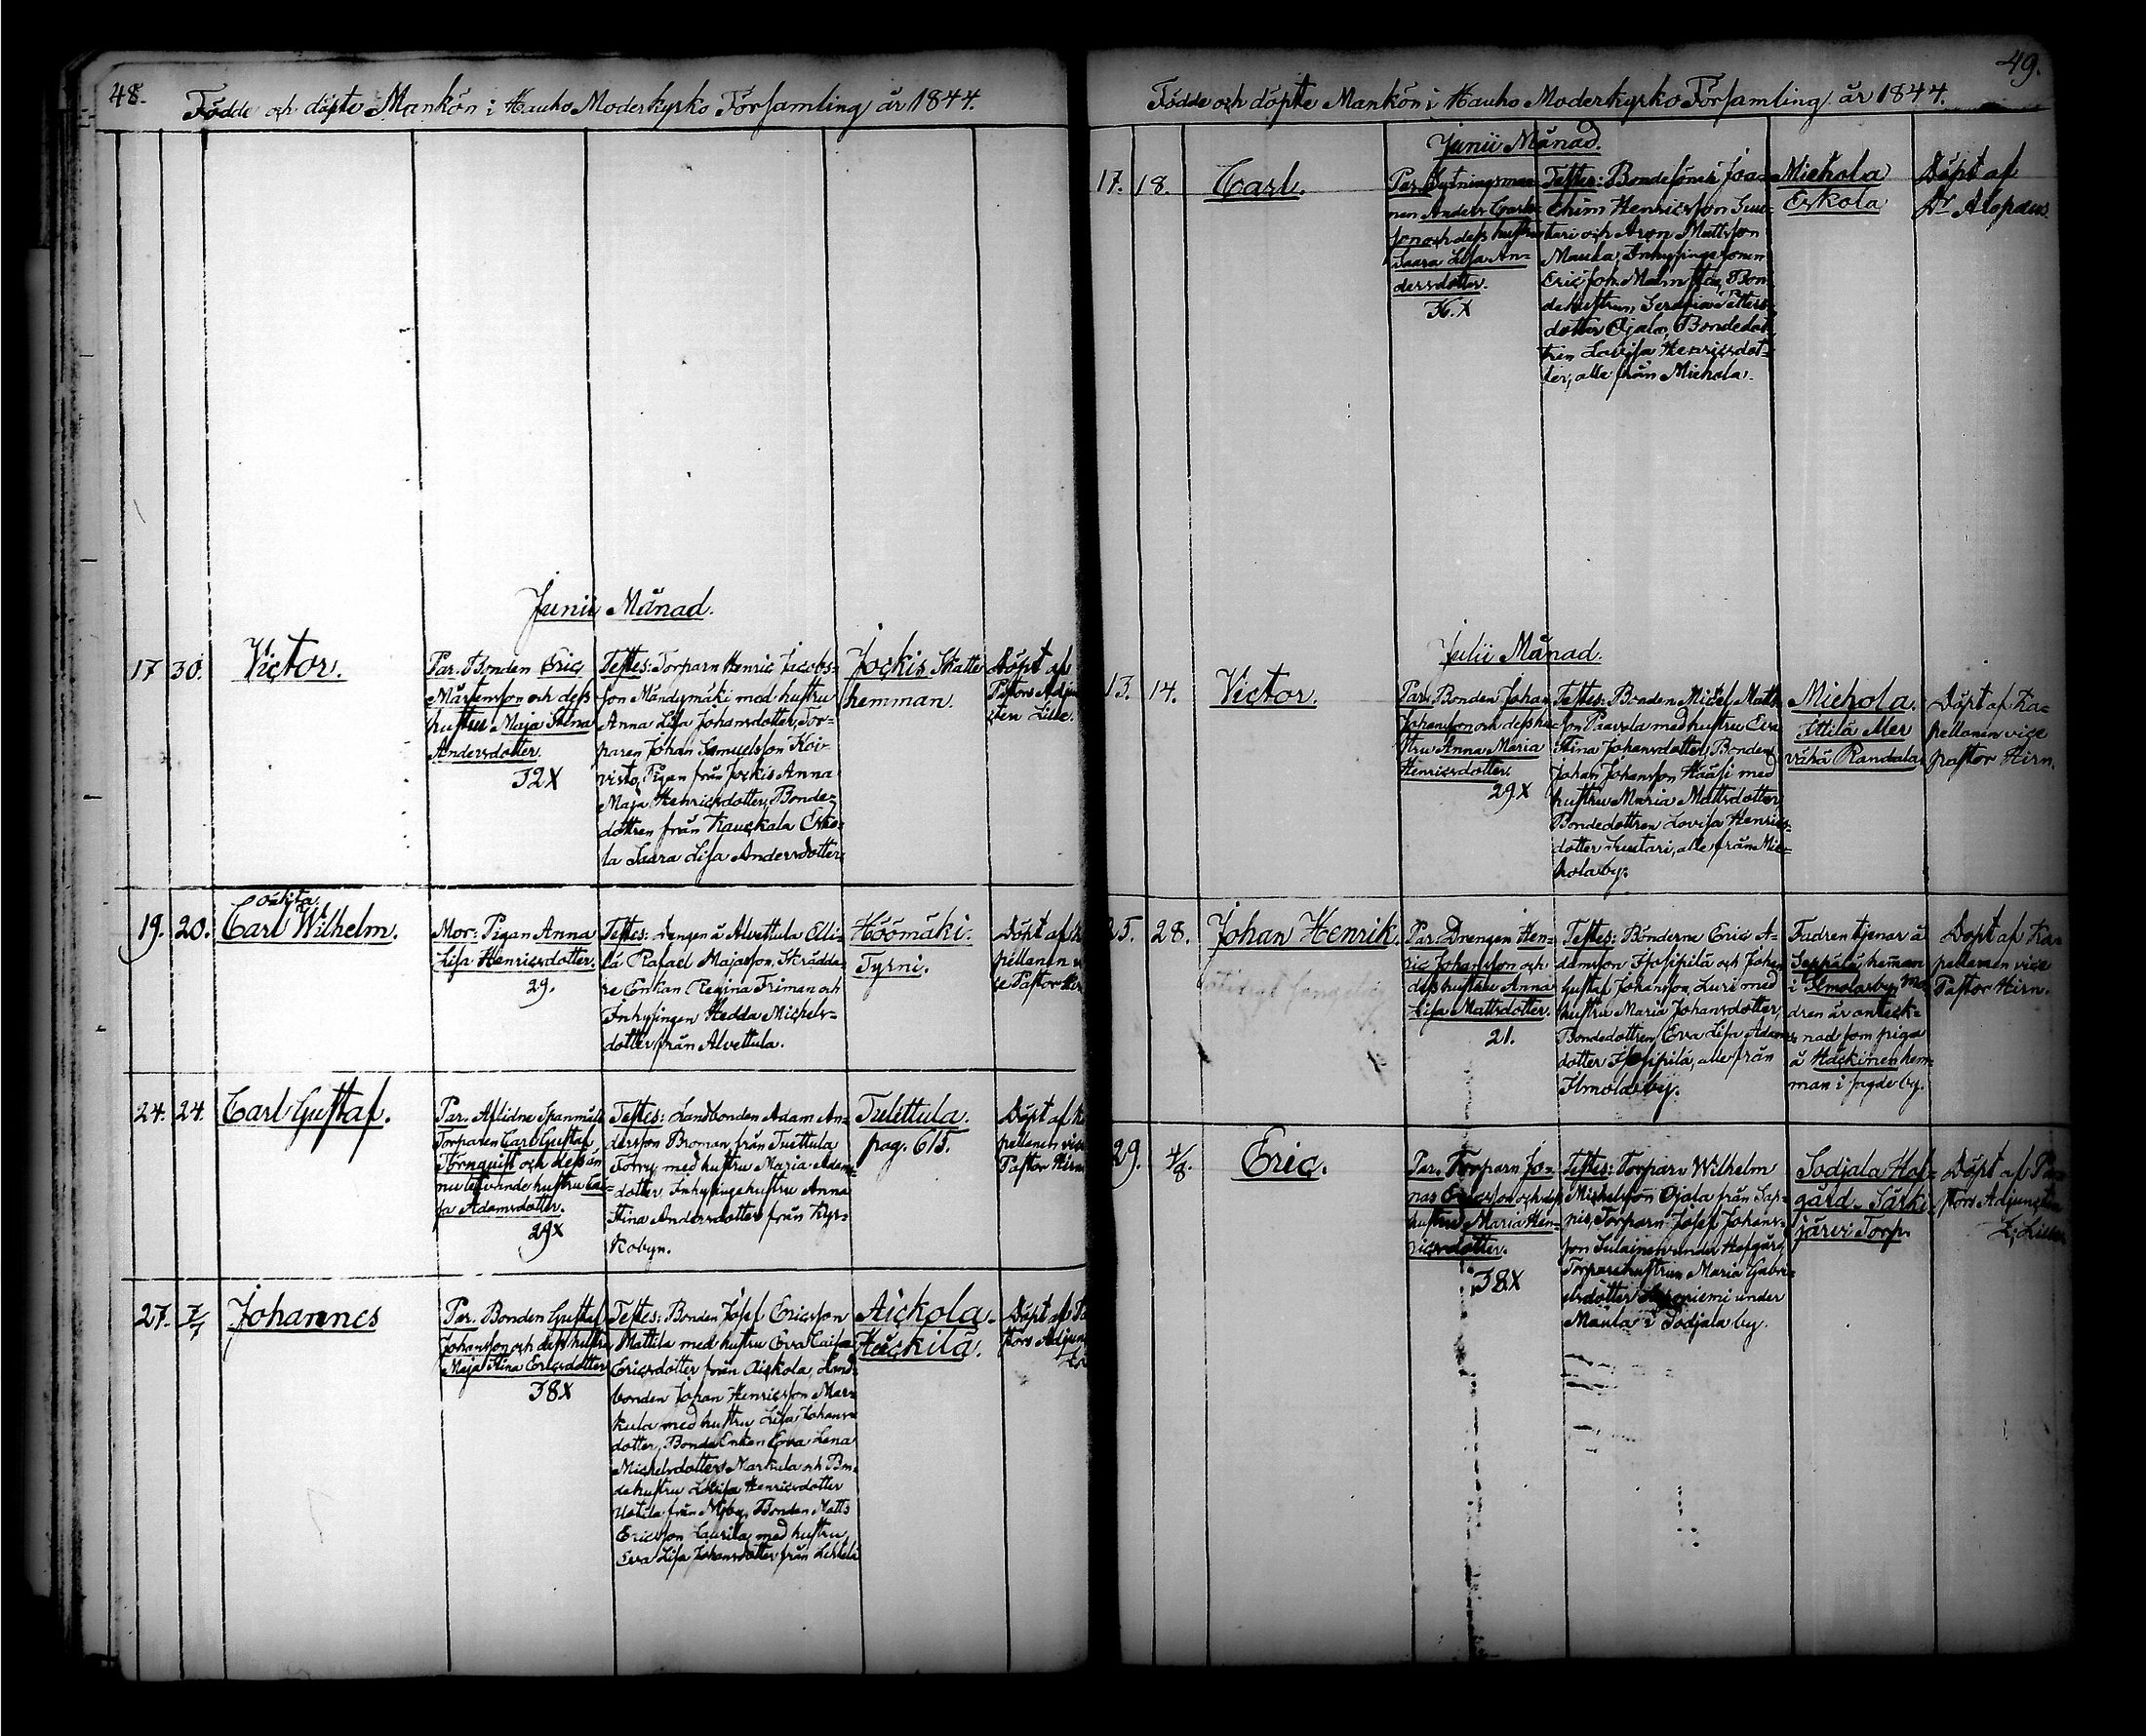 48.
Födde och döpte Mankön i Hauho Moderkyrko Församling år 1844.
Junii Månad.
17 30. Victor.
Par. Bonden Eric
Mårtensson och dess
hustru Maja Stina
Andersdotter.
32X
Testes: Torparn Henric Jacobs-
son Mändymäki med hustru
Anna Lisa Johansdotter, Tor-
paren Johan Samuelsson Koi-
visto, Pigan från Jockis Anna
Maja Henricsdotter, Bonde-
dottren från Kauckala Erko-
la Saara Lisa Andersdotter.
Jockis Skatte
hemman.
Döpt af
Pastors Adjun
cten Lilie.
19. 20. oäkta
Carl Wilhelm.
Mor: Pigan Anna
Lisa Henricsdotter.
29.
Testes: Drengen å Alvettula Elli-
lä Rafael Majasson, Skrädda-
re Enkan Regina Friman och
Inhysingen Hedda Michels-
dotter från Alvettula.
Höömäki.
Tyrni.
Döpt af
pellanen
ce Pastor
24. 24. Carl Gustaf.
Par. Aflidne Spanmåls
Torparen Carl Gustaf
Törnquist och dess än
nu lefvande hustru
Adamsdotter.
29X
Testes: Landbonden Adam An-
dersson Broman från Tuittula
med hustru Maria Adams-
dotter, Inhysingehustru Anna
Stina Andersdotter från Kyr-
kobyn.
Tulettula.
pag. 615.
Döpt af
pellanen vice
Pastor Hirn
27. 7/7 Johannes
Par. Bonden Gustaf
Johansson och dess hustru
Maja Stina Ericsdotter
38X
Testes: Bonden Josef Ericsson
Mattila med hustru Eva Caisa
Ericsdotter från Aickola, Land-
bonden Johan Henricsson Mar-
kula med hustru Lisa Johans-
dotter, Bonde Enkan Eva Lena
Michelsdotter Markula och Bon-
dehustru Lovisa Henricsdotter
Uotila från Bonden Matts
Ericsson Laurila med hustru
Eva Lisa Johansdotter från
Aickola.
Häckilä.
Döpt af
stors Adjun
49.
Födde och döpte Mankön i Hauho Moderkyrko Församling år 1844.
Junii Månad.
17. 18. Carl.
Par.
nen Anders Carls-
son och dess hustru
Saara Lisa An-
dersdotter.
36.X
Testes: Bondesonen Joa-
chim Henricsson Suu-
tari och Aron Mattsson
Maula, Inhysingesonen
Eric Joh. Malmstén, Bon-
dehustrun Serafia Petters-
dotter Ojala, Bondedot-
tren Lovisa Henricsdot-
ter, alle från Miehola.
Miehola
Erkola
Döpt af
Dr Alopæus.
Julii Månad.
13. 14. Victor.
Par. Bonden Johan
Johansson och dess hu-
stru Anna Maria
Henricsdotter.
29X
Testes: Bonden Michel Matts-
son Paavola med hustru Eva
Stina Johansdotter, Bonden
Johan Johansson Haasi med
hustru Maria Mattsdotter
Bondedottren Lovisa Henrics-
dotter Suutari, alle från Mie-
hola by.
Miehola.
Ittilä Mer
vähä Randala.
Döpt af Ka-
pellanen vice
Pastor Hirn.
25. 28. Johan Henrik.
Par. Drengen Hen-
ric Johansson och
dess hustru Anna
Lisa Mattsdotter.
21.
Testes: Bönderne Eric A-
damsson Isosipilä och Johan
Gustaf Johansson Luri med
hustru Maria Johansdotter
Bondedottren Eva Lisa Adams-
dotter Isosipilä, alle från
Ilmola by.
Fadren tjenar å
Seppälä heman
i Ilmola by, Mo-
dren är anteck-
nad som piga
å Häckinen hem-
man i sagde by.
Döpt af Ka-
pellanen vice
Pastor Hirn.
29. 4/8. Eric.
Par. Torparn Jo-
nas Ericsson och dess
hustru Maria Hen-
ricsdotter.
38X
Testes: Torparn Wilhelm
Michelsson Ojala från Sap-
pis, Torparn Josef Johans-
son Sulainen under Hofgård,
Torparehustrun Maria Gabri-
elsdotter under
Maula i Sodjala by.
Sodjala Hof-
gård. Särki-
järvi Torp.
Döpt af Pa-
stors Adjuncten